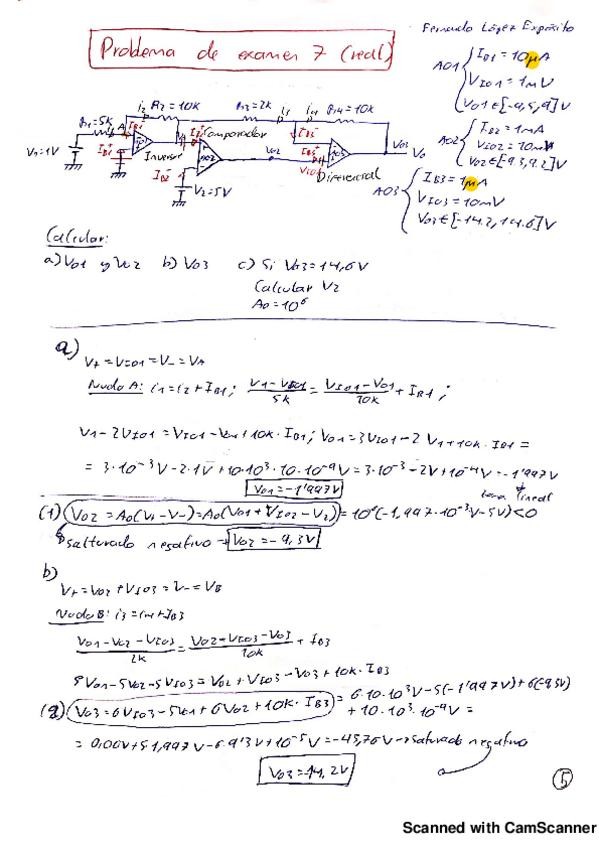 Fernando López Expósito
Problema de examen 7 (real)
AO1 { IB1 = 10μA
VIO1 = 1mV
VO1 ∈ [-9,5, 9] V
AO2 { IB2 = 1mA
VIO2 = 10mV
VO2 ∈ [-9.3, 9.2] V
AO3 { IB3 = 1μA
VIO3 = 10mV
VO3 ∈ [-14.2, 14.6] V
R1 = 5k
R2 = 10k
R3 = 2k
R4 = 10k
V1 = 1V
Inversor
Comparador
V2 = 5V
Diferencial
VO2
VO3
Vo
Calcular:
a) VO1 y VO2 b) VO3 c) Si VO3 = 14,6V
Calcular V2
Ao = 10⁶
a)
V+ = VIO1 = V- = VA
Nudo A: i1 = i2 + IB1; (V1 - VIO1)/5k = (VIO1 - VO1)/10k + IB1;
= 3·10⁻³V - 2·1V + 10·10³·10·10⁻⁹V = 3·10⁻³ - 2V + 10⁻⁴V = -1'997V
VO1 = -1'997V
zona lineal
(1) VO2 = Ao(V+ - V-) = Ao(VO1 + VIO2 - V2) = 10⁶(-1,997·10⁻³V - 5V) < 0
saturado negativo → VO2 = -9,3V
b)
V+ = VO2 + VIO3 = V- = VB
Nudo B: i3 = i4 + IB3
(VO1 - VO2 - VIO3)/2k = (VO2 + VIO3 - VO3)/10k + IB3
5VO1 - 5VO2 - 5VIO3 = VO2 + VIO3 - VO3 + 10k·IB3
(2) VO3 = 6VIO3 - 5VO1 + 6VO2 + 10k·IB3 = 6·10·10⁻³V - 5(-1'997V) + 6(-9,3V)
+ 10·10³·10⁻⁹V =
= 0,06V + 5·1,997V - 6·9'3V + 10⁻⁵V = -45,76V → saturado negativo
VO3 = -14,2V
5
Scanned with CamScanner